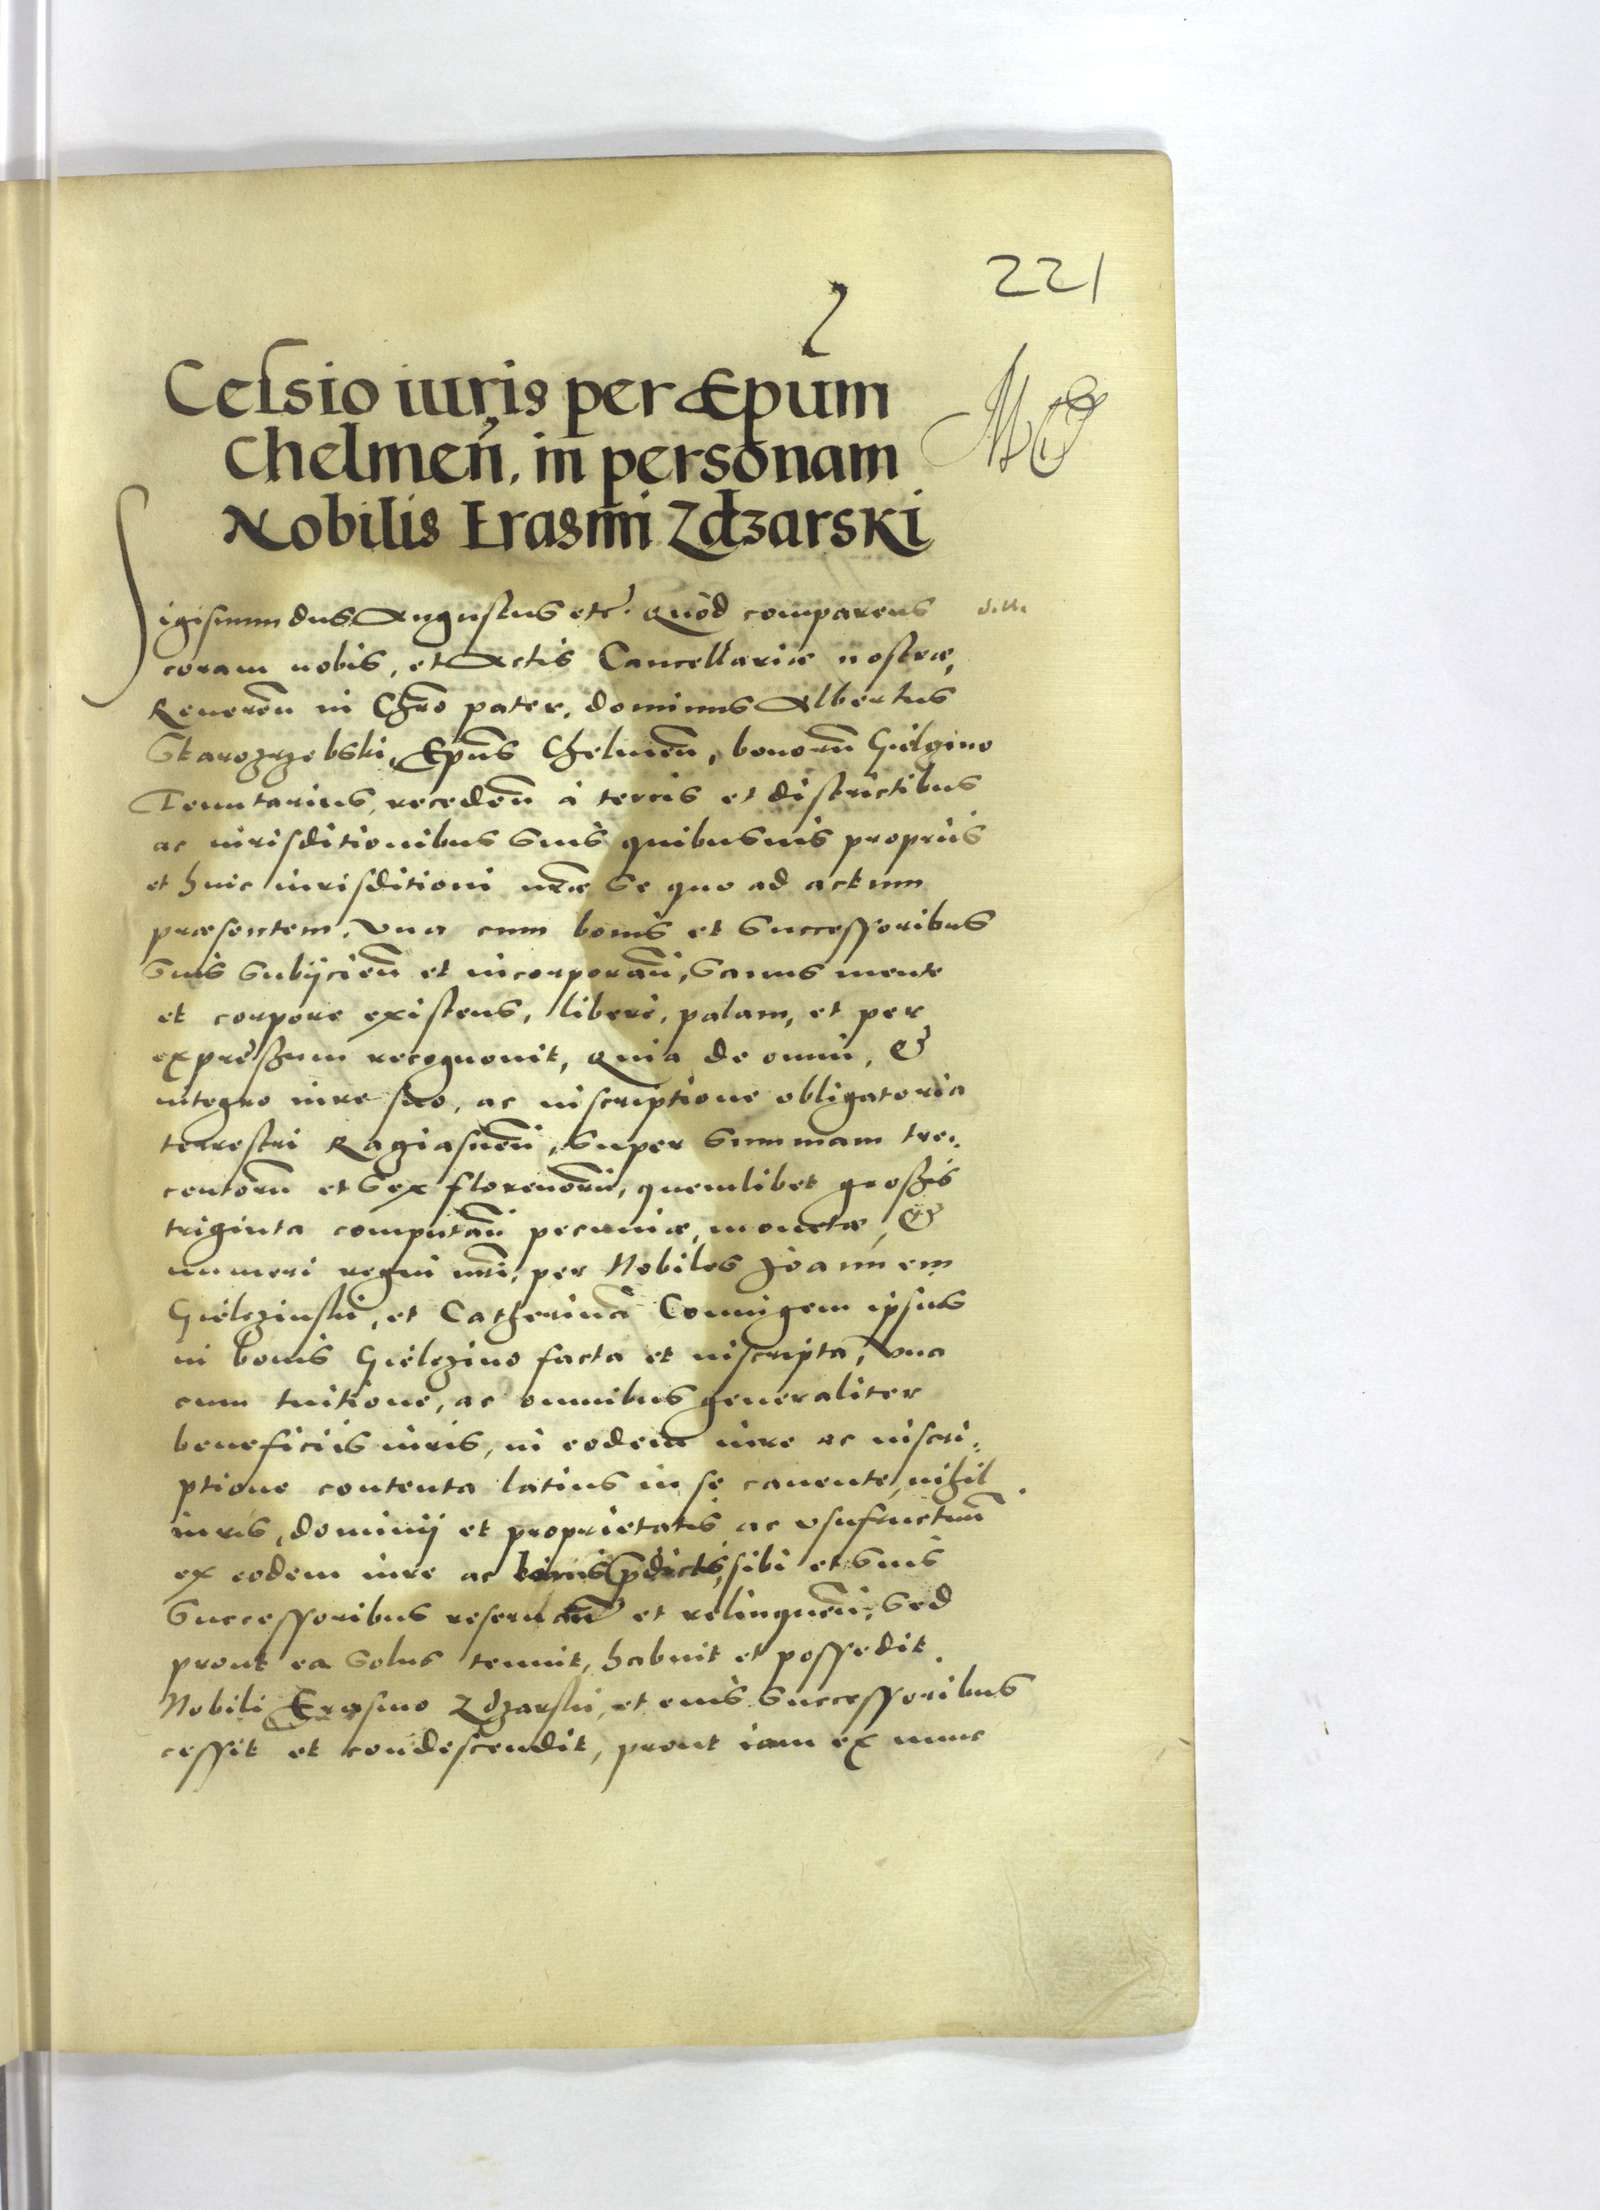 221
Cessio iuris per Epum
Chelmen̄. in personam
Nobilis Erasmi Zdzarski
Sigismundus Augustus etc̄. Quòd comparens
coram nobis, et Actis Cancellariæ nostræ,
Reueren̄ in Chro̅ pater, dominus Albertus
Starozrzebski, Epūs Chelmen̄, bonorū Gielgino
Tenutarius, receden̄ à terris et districtibus
ac iurisditionibus suis quibusuis proprijs
et huic iurisditioni nrae̅ se quo ad actum
præsentem, vna cum bonis et successoribus
suis subijcien̄ et incorporan̄, sanus mente
et corpore existens, liberè, palam, et per
expressum recognouit, Quia de omni, &
integro iure suo, ac inscriptione obligatoria
terrestri Ragiasnen̄, super summam tre:
centorū et sex florenorū, quemlibet grossis
triginta computan̄ pecuniæ, monetæ, &
numeri regni nr̄i, per Nobiles Joannem
Gielczinski, et Catherinā Coniugem ipsius
in bonis Gielczino facta et inscripta, vna
cum tuitione, ac omnibus generaliter
beneficiis iuris, in eodem iure ac inscri:
ptione contenta latius in se cauente, nihil
iuris, dominij et proprietatis ac vsufructuū
ex eodem iure ac bonis p̄dictis, sibi et suis
successoribus reseruan̄ et relinquen̄, sed
prout ea solus tenuit, habuit et possedit.
Nobili Erasmo Zdzarski, et eius successoribus
cessit et condescendit, prout iam ex nunc